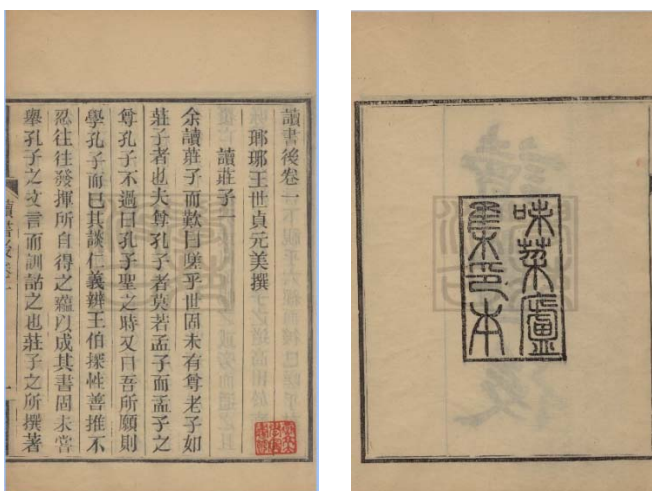 讀書後卷一
瑯琊王世貞元美撰
讀莊子一
余讀莊子而歎曰嗟乎世固未有尊老子如
莊子者也夫尊孔子者莫若孟子而孟子之
尊孔子不過曰孔子聖之時又曰吾所願則
學孔子而已其談仁義辨王伯探性善推不
忍往往發揮所自得之蘊以成其書固未嘗
舉孔子之文言而訓詁之也莊子之所撰著
讀書後卷一
味菜廬
集印本